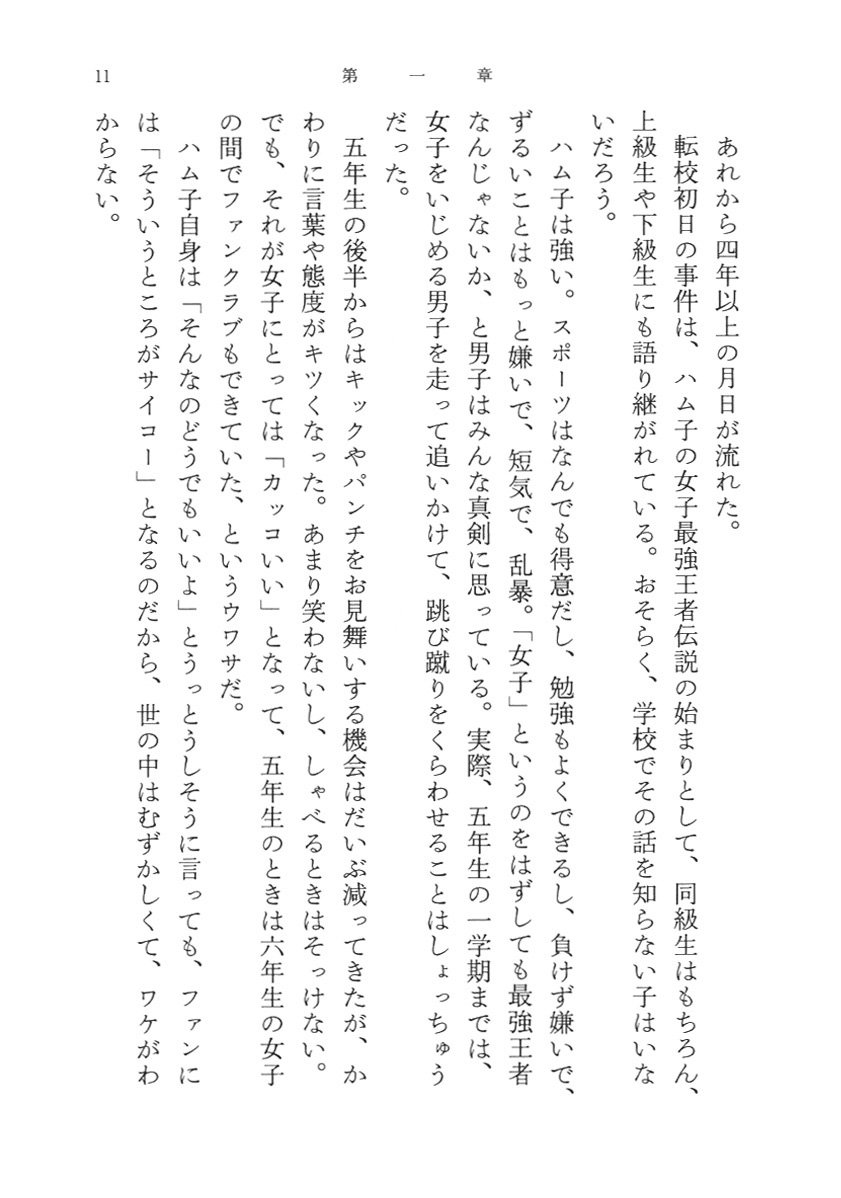 11
第一章
あれから四年以上の月日が流れた。
転校初日の事件は、ハム子の女子最強王者伝説の始まりとして、同級生はもちろん、
上級生や下級生にも語り継がれている。おそらく、学校でその話を知らない子はいな
いだろう。
ハム子は強い。スポーツはなんでも得意だし、勉強もよくできるし、負けず嫌いで、
ずるいことはもっと嫌いで、短気で、乱暴。「女子」というのをはずしても最強王者
なんじゃないか、と男子はみんな真剣に思っている。実際、五年生の一学期までは、
女子をいじめる男子を走って追いかけて、跳び蹴りをくらわせることはしょっちゅう
だった。
五年生の後半からはキックやパンチをお見舞いする機会はだいぶ減ってきたが、か
わりに言葉や態度がキツくなった。あまり笑わないし、しゃべるときはそっけない。
でも、それが女子にとっては「カッコいい」となって、五年生のときは六年生の女子
の間でファンクラブもできていた、というウワサだ。
ハム子自身は「そんなのどうでもいいよ」とうっとうしそうに言っても、ファンに
は「そういうところがサイコー」となるのだから、世の中はむずかしくて、ワケがわ
からない。